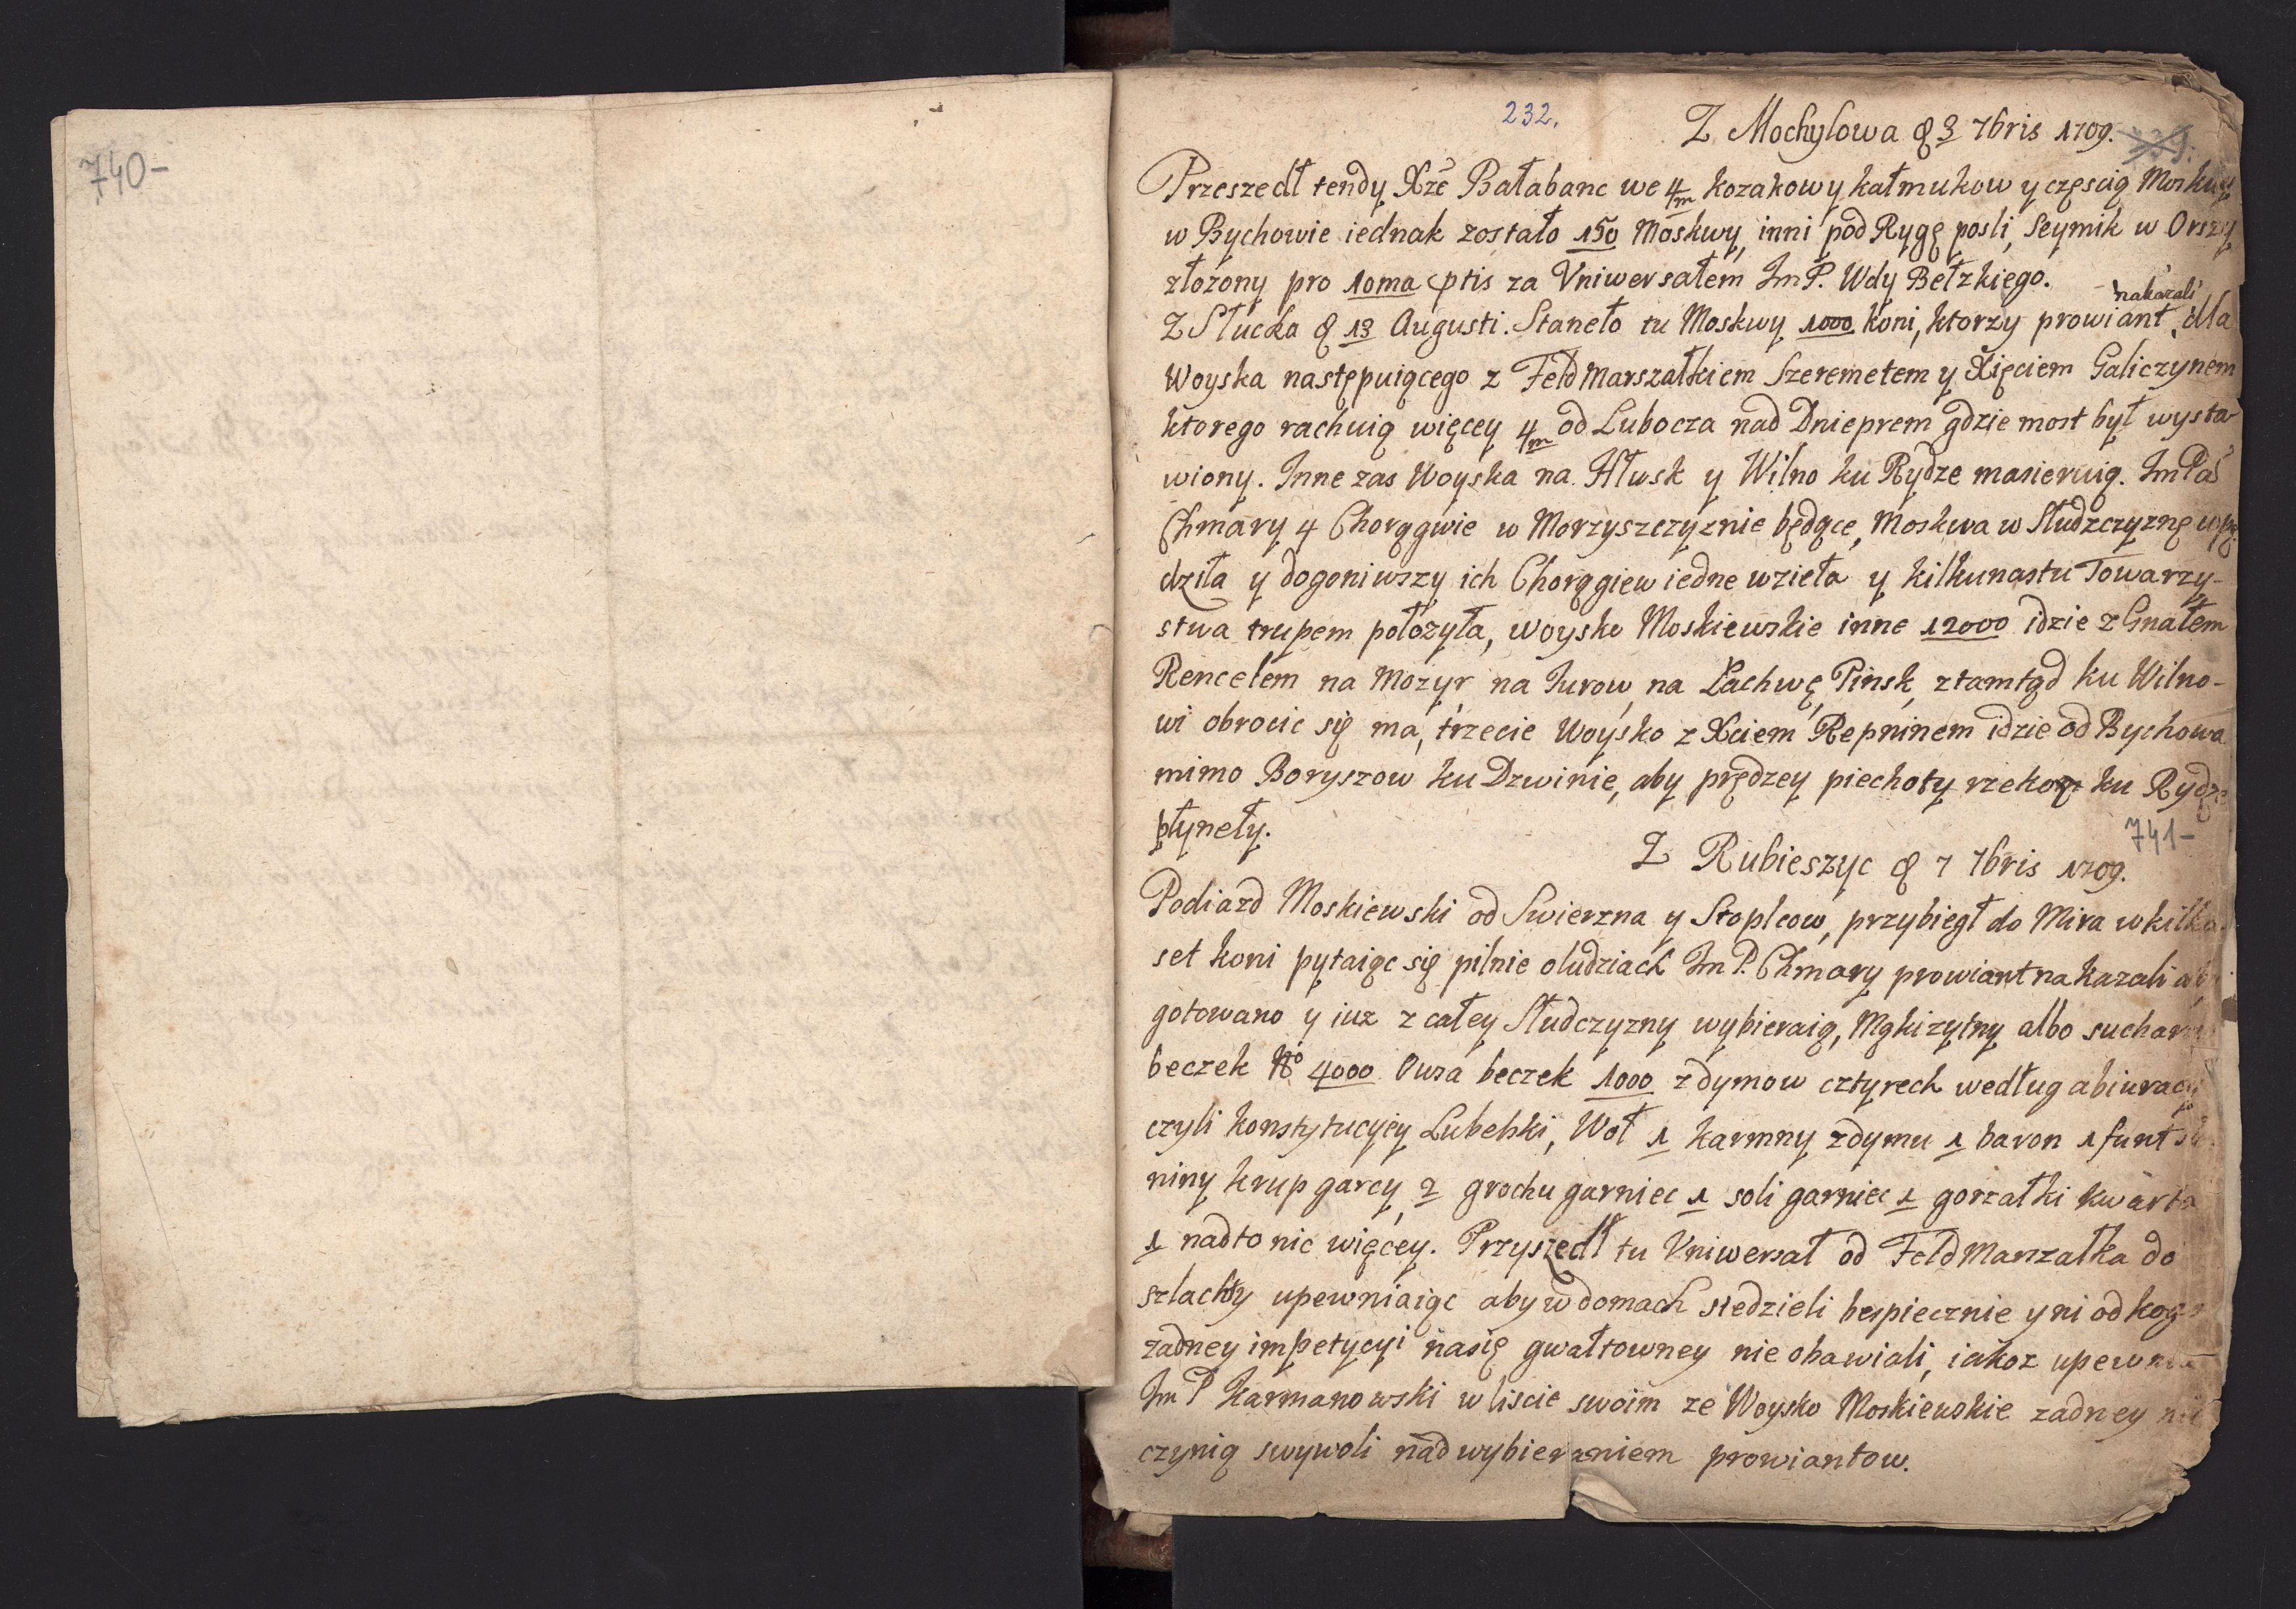 740-
232.
Z Mochylowa d 3 7bris 1709.
Przeszedł tendy Xże Bałabanc we 4m kozakow y kałmukow y częscią Moskwy
w Bychowie iednak zostało 150 Moskwy, inni pod Rygę posli, Seymik w Orszy
złożony pro 10ma 7ptis za Vniwersałem Im P. Wdy Bełzkiego.
nakazali
Z Słucka d 13 Augusti. Staneło tu Moskwy 1000 koni, ktorzy prowiant dla
Woyska następuiącego z Feld Marszałkiem Szeremetem y Xięciem Galiczynem
ktorego rachuią więcey 4m od Lubocza nad Dnieprem gdzie most był wysta
wiony. Inne zas Woyska na Hłusk y Wilno ku Rydze masieruią. Im Pa
Chmary 4 Chorągwie w Morzyszczyznie będące, Moskwa w Słudzczyznę wpę
dziła y dogoniwszy ich Chorągiew iedne wzieła y kilkunastu Towarzy-
stwa trupem położyła, woysko Moskiewskie inne 12000 idzie z Gnałem
Rencelem na Mozyr, na Turow, na Łachwę, Pinsk, ztamtąd ku Wilno-
wi obrocic się ma, trzecie Woysko z Xciem Repninem idzie od Bychowa
mimo Boryszow ku Dzwinie, aby prędzey piechoty rzeką ku Rydze
płyneły.
741-
Z Rubieszyc d 7 7bris 1709.
Podiazd Moskiewski od Swierzna y Stopłcow, przybiegł do Mira w kilka
set koni pytaiąc się pilnie o ludziach Im P. Chmary prowiant nakazali aby
gotowano y iuz z całey Słudczyzny wybieraią, Mąki zytny albo sucharow
beczek No 4000 Owsa beczek 1000 z dymow cztyrech według abiuracyi
czyli konstytucyey Lubelski, Woł 1 karmny z dymu 1 baron 1 funt sło
niny krup garcy 2 grochu garniec 1 soli garniec 1 gorzałki kwarta
1 nadto nic więcey. Przyszedł tu Vniwersał od Feld Marszałka do
szlachty upewniaiąc aby w domach siedzieli bespiecznie y ni od kogo
zadney impetycyi nasię gwałtowney nie obawiali, iakoz upewnia
Im P Karmanowski w liscie swoim ze Woysko Moskiewskie zadney nie
czynią swywoli nad wybieraniem prowiantow.